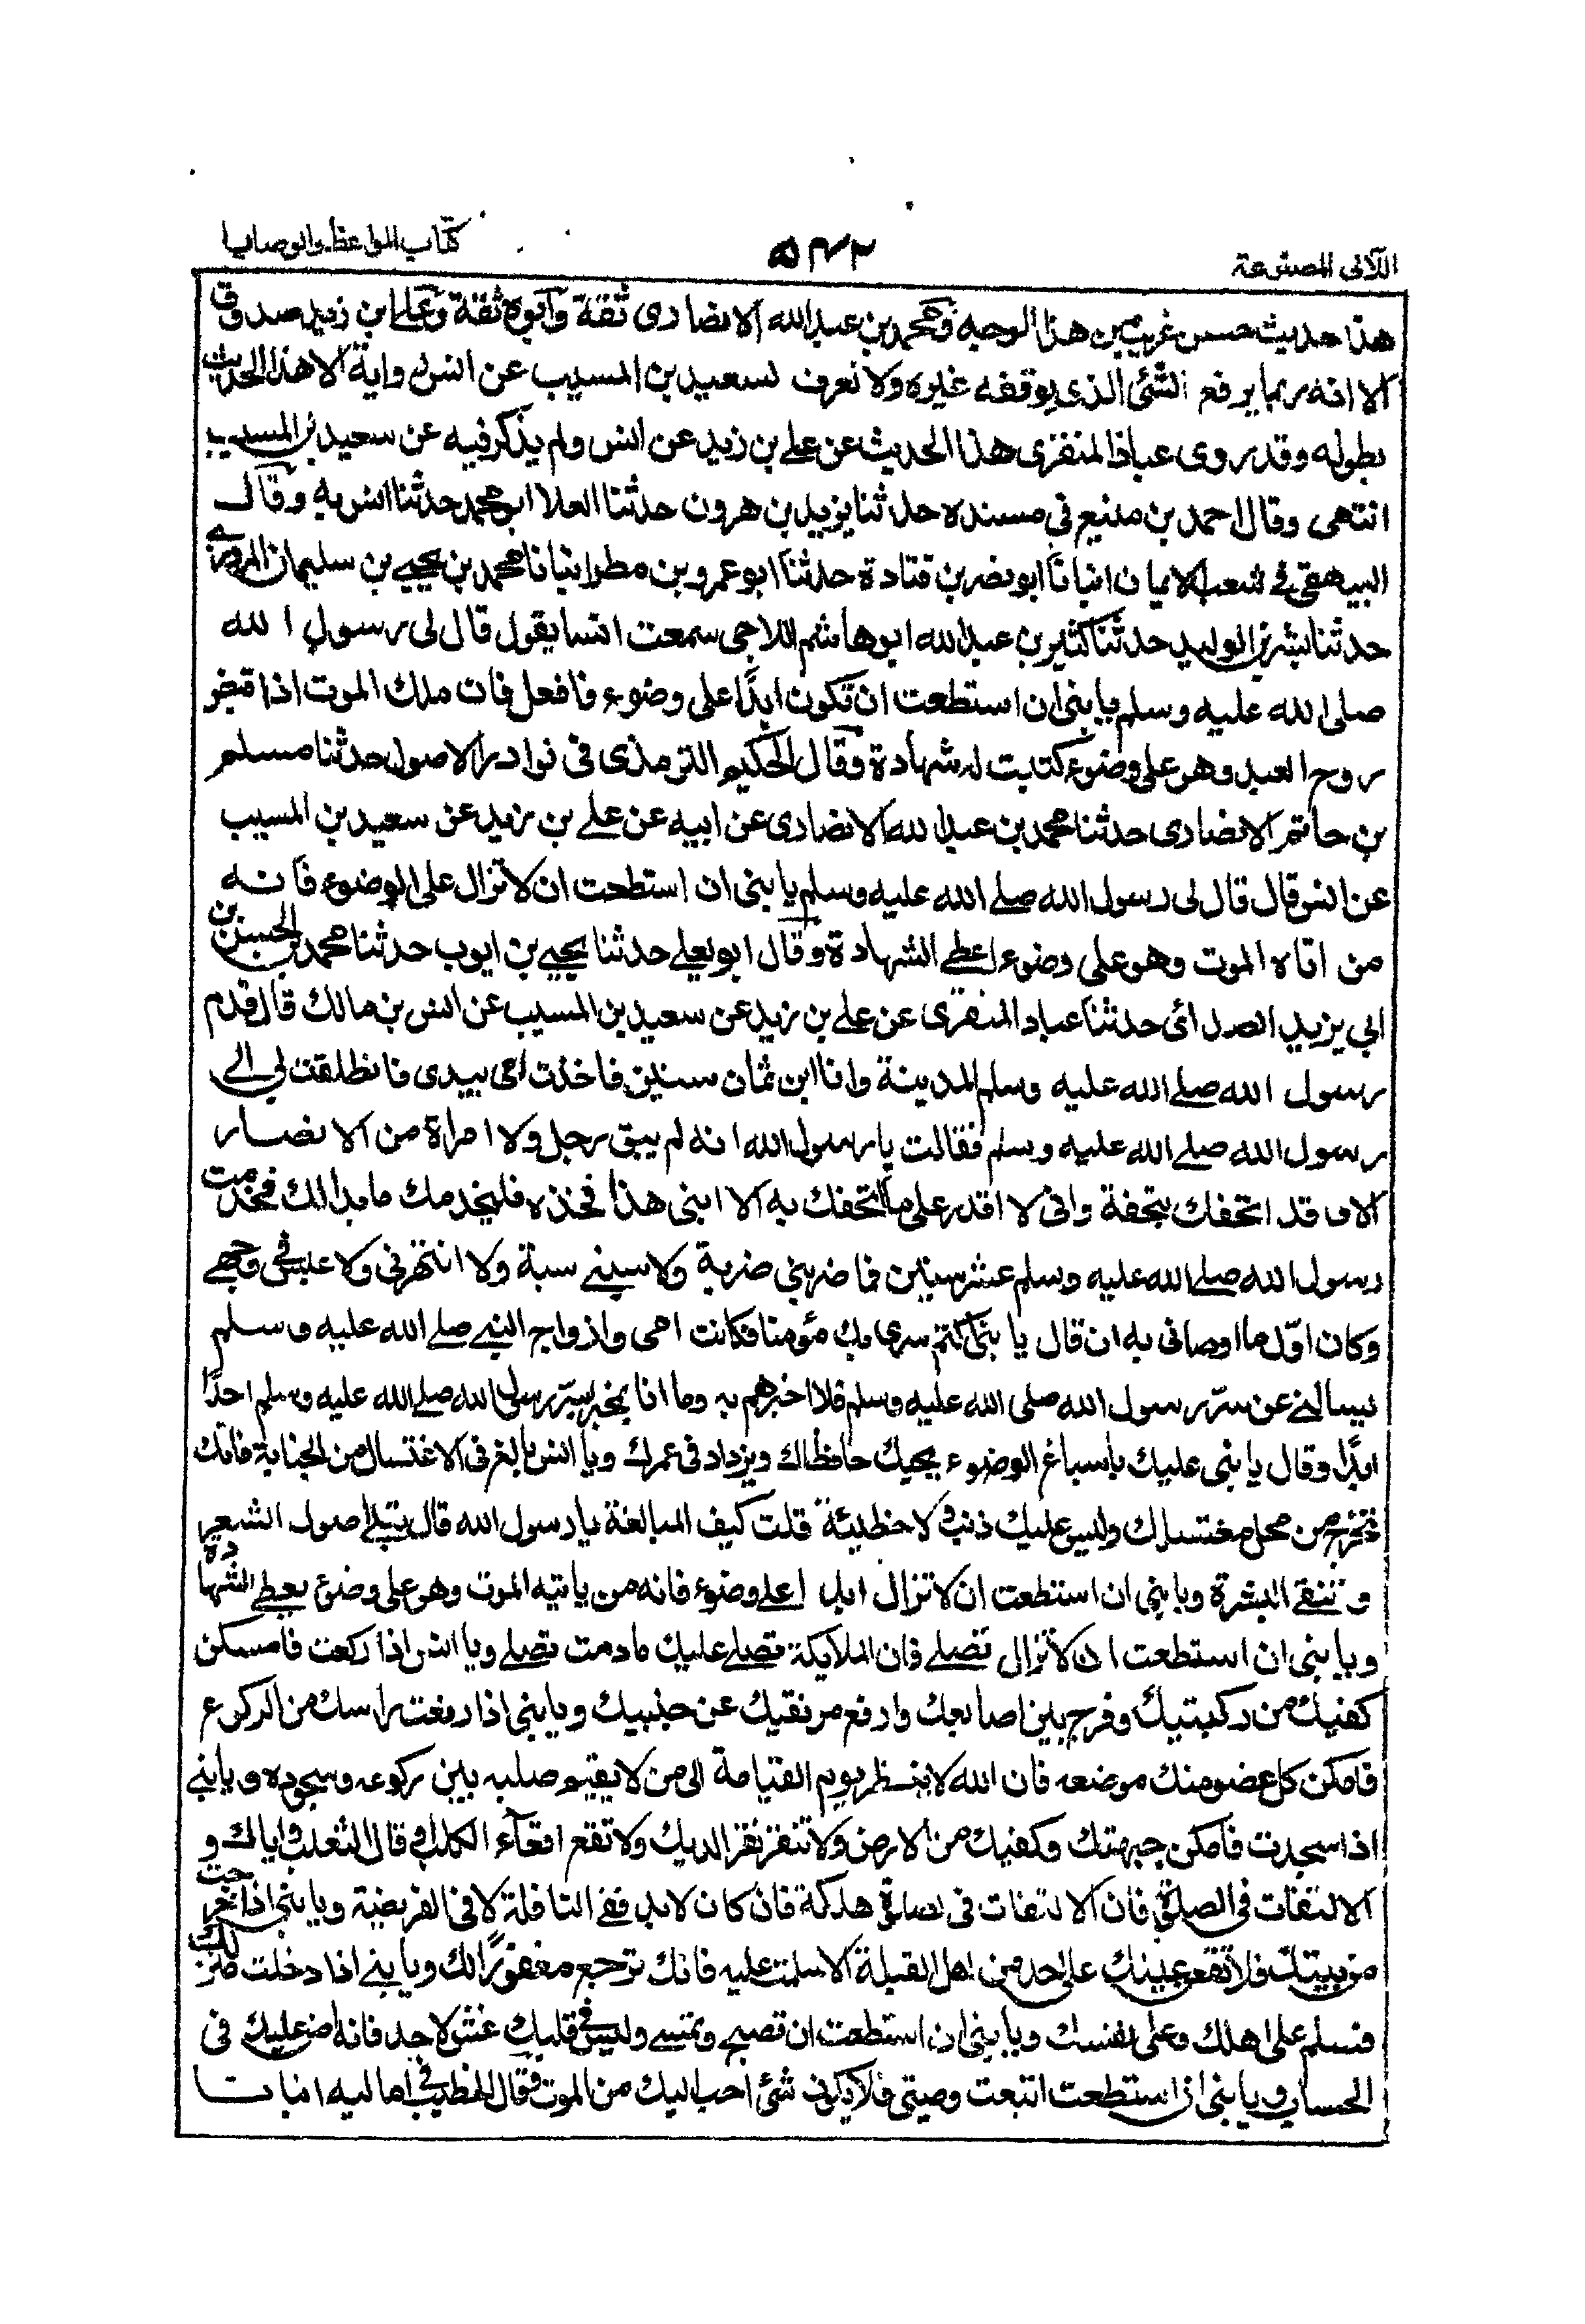 اللآلی المصنوعة ٥٣٢ کتاب المواعظ والوصایا
هذا حدیث حسن غریب من هذا الوجه ومحمد بن عبدالله الانصاری ثقة وابوه ثقة وعلی ابن زید صدوق
الا انه ربما یرفع الشئ الذی یوقفه غیره ولا نعرف لسعید بن المسیب عن انس روایة الا هذا الحدیث
بطوله وقد روی عباد المنقری هذا الحدیث عن علی بن زید عن انس ولم یذکر فیه عن سعید بن المسیب
انتهی وقال احمد بن منیع فی مسنده حدثنا یزید بن هرون حدثنا العلا ابو محمد حدثنا انس به وقال
البیهقی فی شعب الایمان انبانا ابو نصر بن قتادة حدثنا ابو عمرو بن مطر انبانا محمد بن یحیی بن سلیمان المروزی
حدثنا بشر بن الولید حدثنا کثیر بن عبدالله ابو هاشم اللاجی سمعت انسا یقول قال لی رسول الله
صلی الله علیه وسلم یا بنی ان استطعت ان تکون ابدًا علی وضوء فافعل فان ملك الموت اذا قبض
روح العبد وهو علی وضوء کتبت له شهادة وقال الحکیم الترمذی فی نوادر الاصول حدثنا مسلم
بن حاتم الانصاری حدثنا محمد بن عبد الله الانصاری عن ابیه عن علی بن زید عن سعید بن المسیب
عن انس قال قال لی رسول الله صلی الله علیه وسلم یا بنی ان استطعت ان لا تزال علی الوضوء فانه
من اتاه الموت وهو علی وضوء اعطی الشهادة وقال ابو یعلی حدثنا یحیی بن ایوب حدثنا محمد بن الحسن بن
ابی یزید الصدائی حدثنا عباد المنقری عن علی بن زید عن سعید بن المسیب عن انس بن مالك قال قدم
رسول الله صلی الله علیه وسلم المدینة وانا ابن ثمان سنین فاخذت امی بیدی فانطلقت بی الی
رسول الله صلی الله علیه وسلم فقالت یا رسول الله انه لم یبق رجل ولا امراة من الانصار
الا وقد اتحفك بتحفة وانی لا اقدر علی ما اتحفك به الا ابنی هذا فخذه فلیخدمك ما بدا لك فخدمت
رسول الله صلی الله علیه وسلم عشر سنین فما ضربنی ضربة ولا سبنی سبة ولا انتهرنی ولا عبس فی وجهی
وکان اوّل ما اوصانی به ان قال یا بنی اکتم سری تك مؤمنا فکانت امی وازواج النبی صلی الله علیه وسلم
یسالننی عن سرّ رسول الله صلی الله علیه وسلم فلا اخبرهم به وما انا بمخبر بسرّ رسول الله صلی الله علیه وسلم احدًا
ابدًا وقال یا بنی علیك باسباغ الوضوء یحبك حافظاك ویزداد فی عمرك ویا انس بالغ فی الاغتسال من الجنابة فانك
تخرج من محل مغتسلك ولیس علیك ذنب ولا خطیئة قلت کیف المبالغة یا رسول الله قال تبتل اصول الشعر
وتنقی البشرة ویا بنی ان استطعت ان لا تزال ابدا علی وضوء فانه من یاتیه الموت وهو علی وضوء یعطی الشهادة
ویا بنی ان استطعت ان لا تزال تصلی فان الملایکة تصلی علیك ما دمت تصلی ویا انس اذا رکعت فامسکن
کفیك من رکبتیك وفرج بین اصابعك وارفع مرفقیك عن جنبیك ویا بنی اذا رفعت راسك من الرکوع
فامکن کل عضو منك موضعه فان الله لا ینظر یوم القیامة الی من لا یقیم صلبه بین رکوعه وسجوده ویا بنی
اذا سجدت فامکن جبهتك وکفیك من الارض ولا تنقر نقر الدیك ولا تقع اقعآء الکلب او قال الثعلب وایاك و
الالتفات فی الصلوة فان الالتفات فی الصلوة هلکة فان کان لابد ففی النافلة لا فی الفریضة ویا بنی اذا خرجت
من بیتك فلا تقعن عینك علی احد من اهل القبلة الا سلمت علیه فانك ترجع مغفورًا لك ویا بنی اذا دخلت منزلك
فسلم علی اهلك وعلی نفسك ویا بنی ان استطعت ان تصبح وتمسی ولیس فی قلبك غش لاحد فانه اهون علیك فی
الحساب ویا بنی ان استطعت اتبعت وصیتی فلا یکون شئ احب الیك من الموت وقال الخطیب فی امالیه انبانا